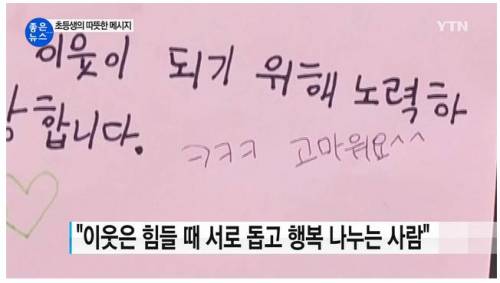 좋은 뉴스
초등생의 따뜻한 메시지
YTN
이웃이 되기 위해 노력하
합니다.
ㅋㅋㅋ 고마워요^^
"이웃은 힘들 때 서로 돕고 행복 나누는 사람"